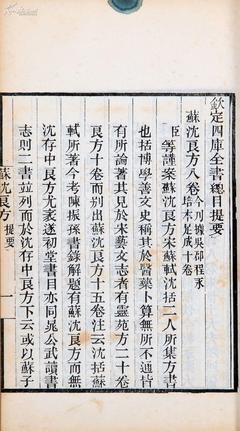 欽定四庫全書總目提要
蘇沈良方八卷
今用據吳郡程永
培本足成十卷
臣等謹案蘇沈良方宋蘇軾沈括二人所集方書
也括博學善文史稱其於醫藥卜算無所不通皆
有所論著其見於宋藝文志者有靈苑方二十卷
良方十卷而别出蘇沈良方十五卷注云沈括蘇
軾所著今考陳振孫書錄解題有蘇沈良方而無
沈存中良方尤袤遂初堂書目亦同晁公武讀書
志則二書並列而於沈存中良方下云或以蘇子
蘇沈良方
提要
一